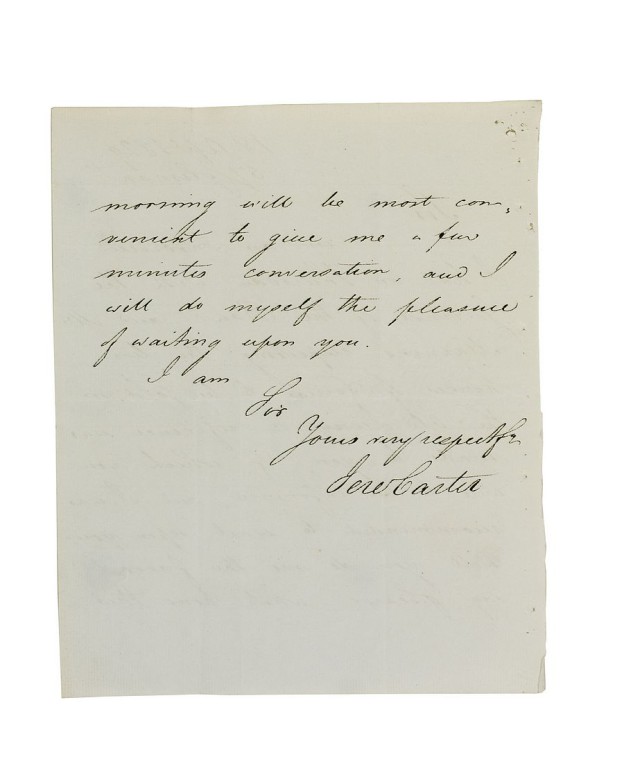 morning will be most con,
venient to give me a few
minutes conversation, and I
will do myself the pleasure
of waiting upon you.
I am
Sir
Yours very respectfy
Jere Carter